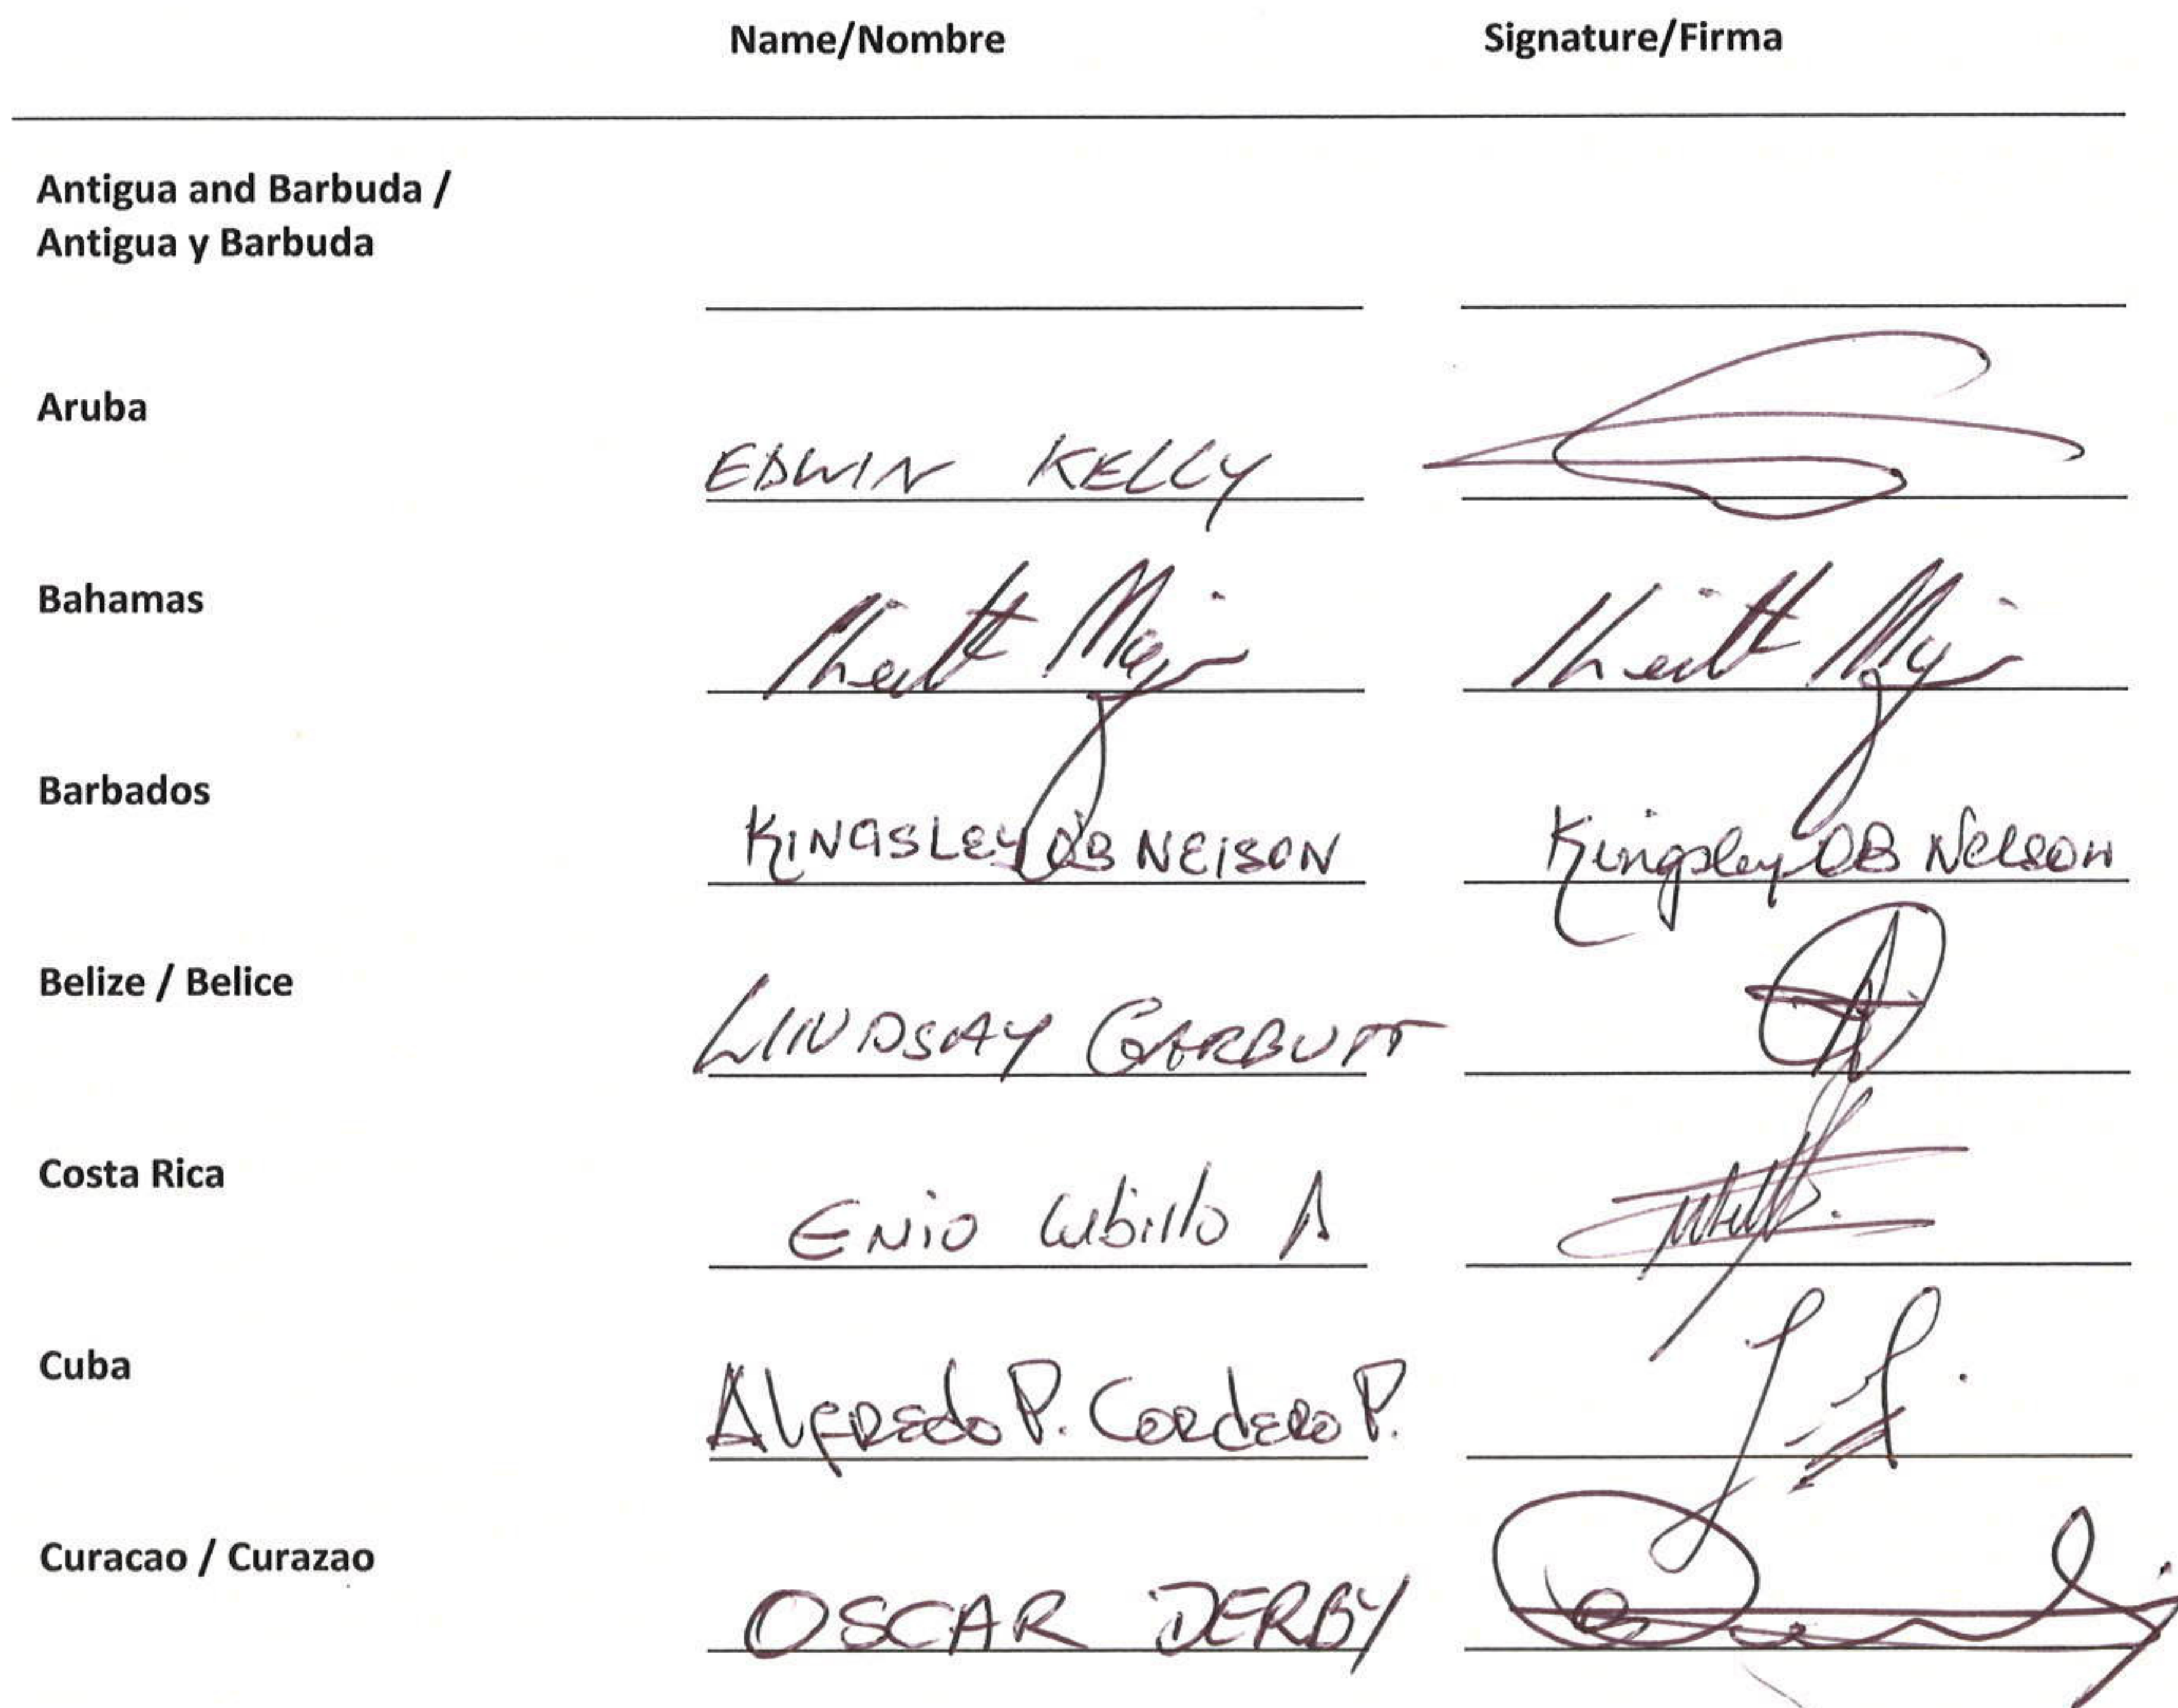 Name/Nombre Signature/Firma
Antigua and Barbuda /
Antigua y Barbuda
Aruba
EDWIN KELLY
Bahamas
Barbados
KINGSLEY OB NELSON Kingsley OB Nelson
Belize / Belice
LINDSAY GARBUTT
Costa Rica
ENIO Cubillo A
Cuba
Alfredo P. Cordero P.
Curacao / Curazao
OSCAR DERBY